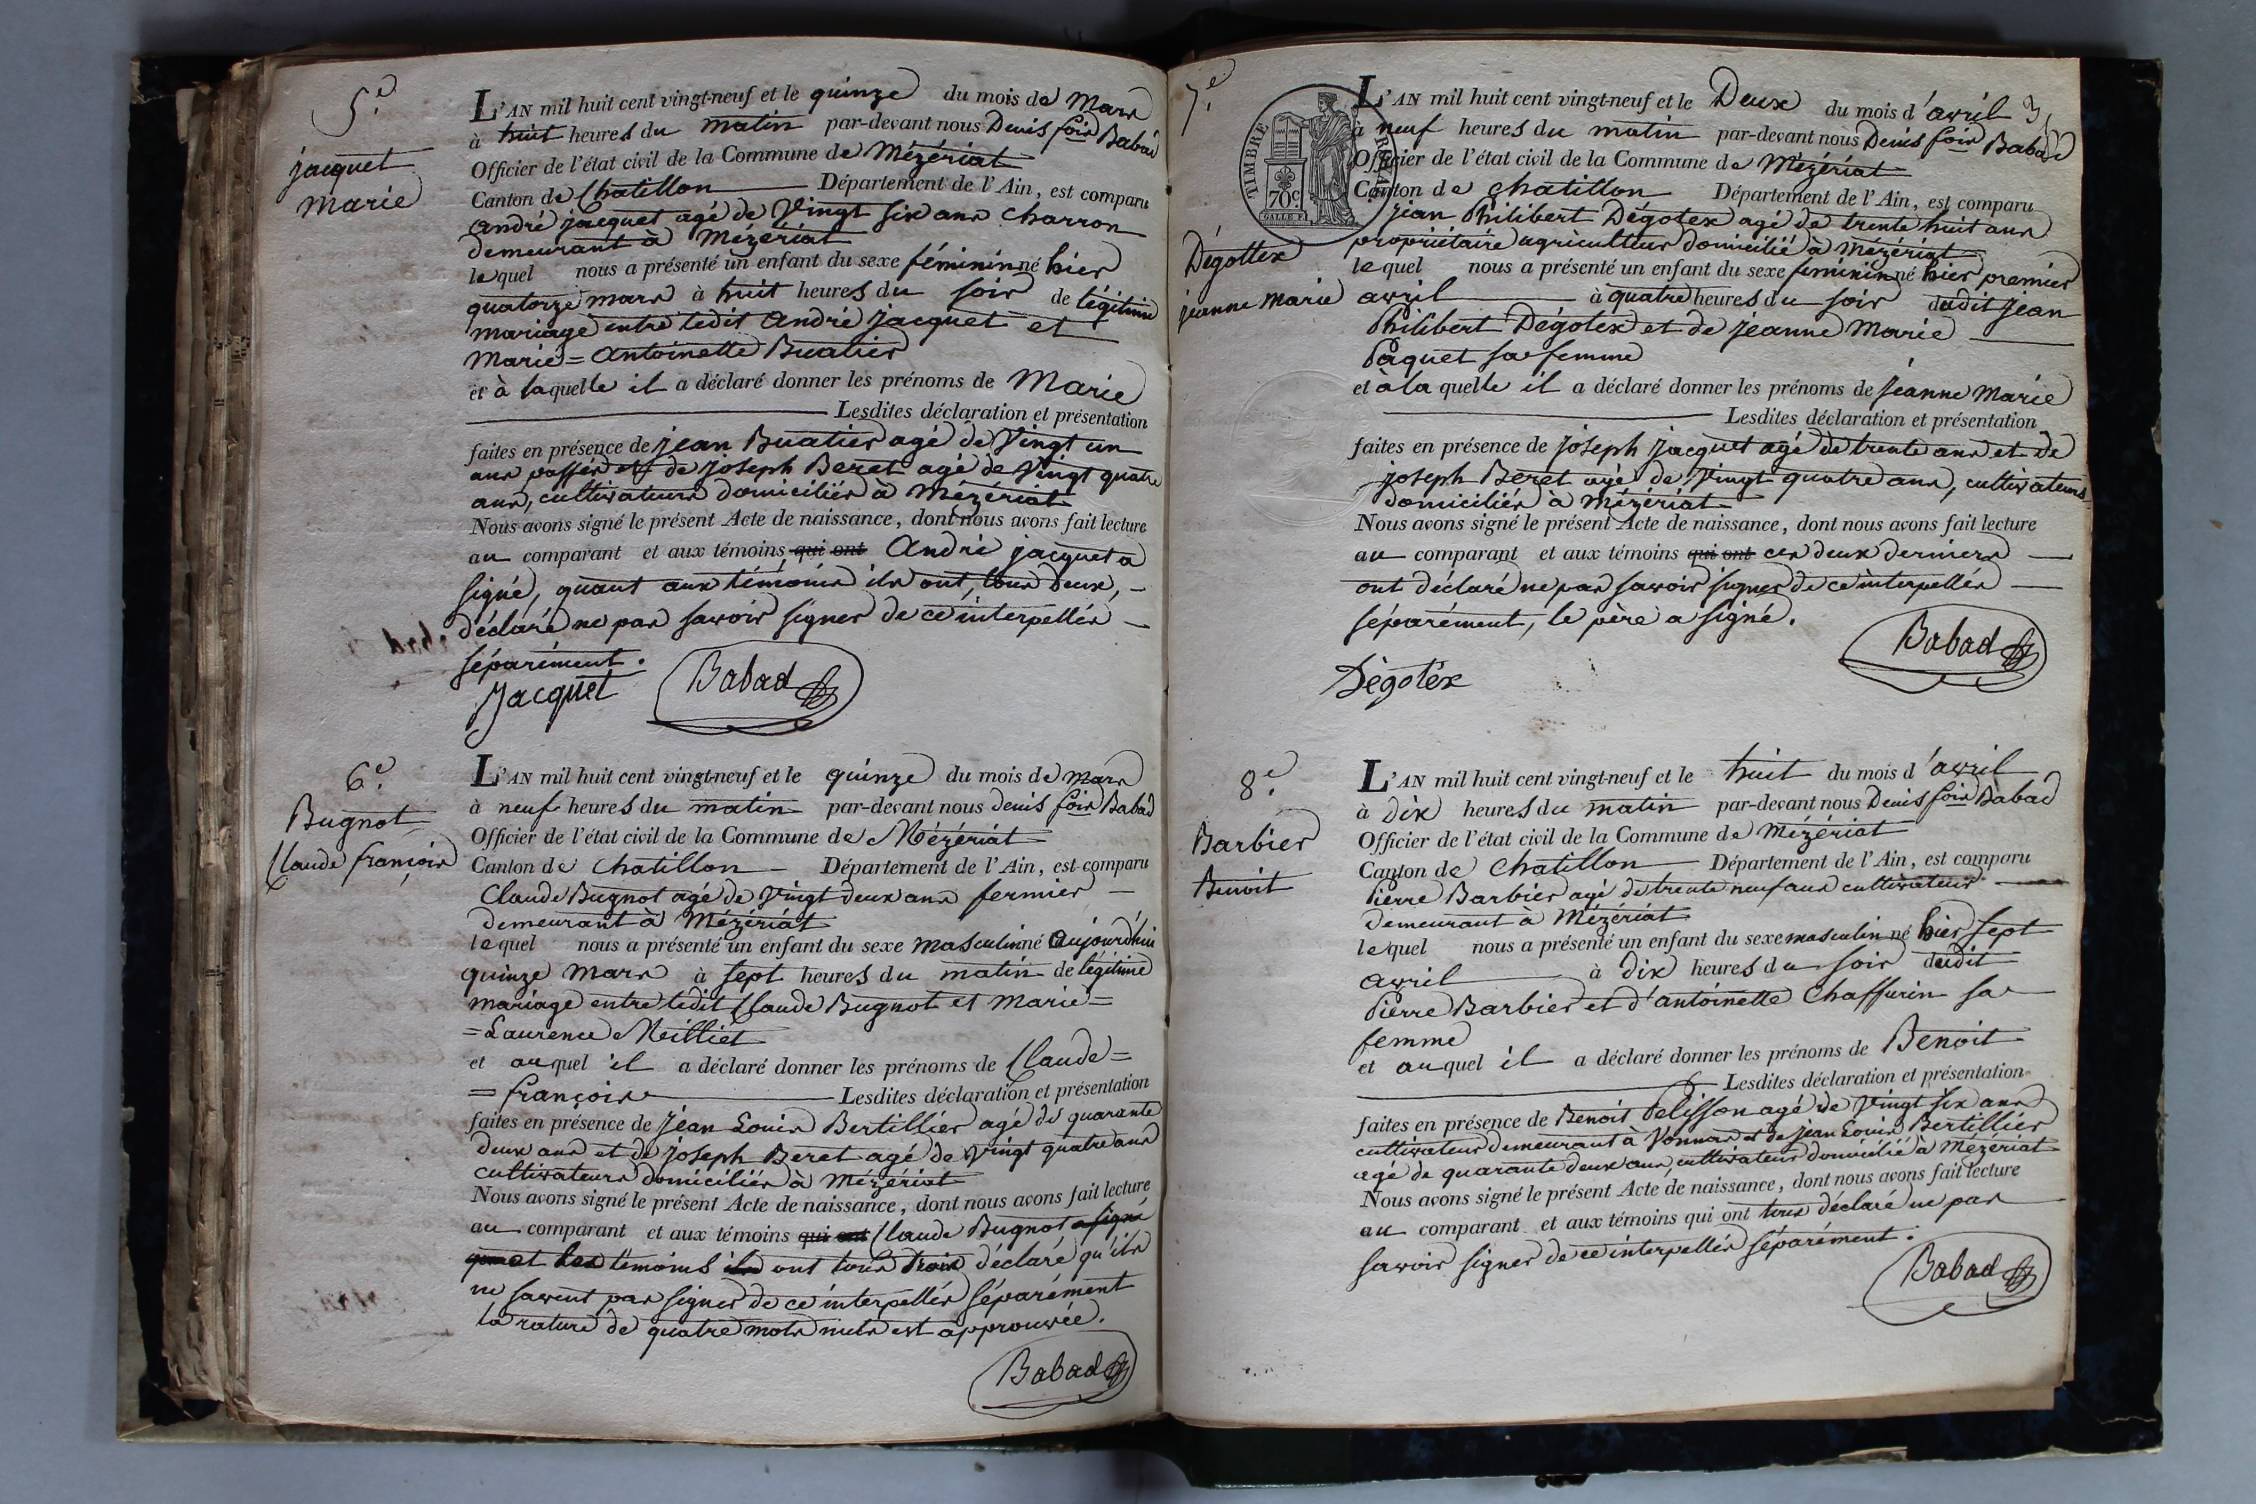 5.e
jacquet
marie
L'AN mil huit cent vingt-neuf et le quinze du mois de Mars
à huit heures du matin par-devant nous Denis foix Babad
Officier de l'état civil de la Commune de Mézériat
Canton de Chatillon Département de l'Ain, est comparu
André jacquet agé de Vingt six ans charron
demeurant à Mézériat
lequel nous a présenté un enfant du sexe féminin né hier
quatorze mars à huit heures du soir de légitime
mariage entre ledit André jacquet et
Marie = antoinette Buatier
et à laquelle il a déclaré donner les prénoms de Marie
Lesdites déclaration et présentation
faites en présence de jean Buatier agé de Vingt un
ans passés et de joseph Beret agé de Vingt quatre
ans, cultivateurs domiciliés à Mézériat
Nous avons signé le présent Acte de naissance, dont nous avons fait lecture
au comparant et aux témoins qui ont André jacquet a
signé, quant aux témoins ils ont, tous deux,
déclaré ne pas savoir signer de ce interpellés
séparément.
Jacquet Babad
6.e
Bugnot
Claude françois
L'AN mil huit cent vingt-neuf et le quinze du mois de Mars
à neuf heures du matin par-devant nous denis foix Babad
Officier de l'état civil de la Commune de Mézériat
Canton de Chatillon Département de l'Ain, est comparu
Claude Bugnot agé de Vingt deux ans fermier
demeurant à Mézériat
lequel nous a présenté un enfant du sexe masculin né aujourd'hui
quinze mars à sept heures du matin de légitime
mariage entre ledit Claude Bugnot et Marie =
= Laurence Milliet
et auquel il a déclaré donner les prénoms de Claude =
= françois Lesdites déclaration et présentation
faites en présence de jean Louis Bertillier agé de quarante
deux ans et de joseph Beret agé de Vingt quatre ans
cultivateurs domiciliés à Mézériat
Nous avons signé le présent Acte de naissance, dont nous avons fait lecture
au comparant et aux témoins qui ont Claude Bugnot a signé
et les témoins ils ont tous trois déclaré qu'ils
ne savent pas signer de ce interpellés séparément
la rature de quatre mots nuls est approuvée.
Babad
7.e
TIMBRE ROYAL
70c.
Dégottex
jeanne Marie
L'AN mil huit cent vingt-neuf et le Deux du mois d'avril 3
à neuf heures du matin par-devant nous Denis foix Babad
Officier de l'état civil de la Commune de Mézériat
Canton de chatillon Département de l'Ain, est comparu
jean Philibert Dégotex agé de trente huit ans
propriétaire agriculteur domicilié à Mézériat
lequel nous a présenté un enfant du sexe féminin né hier premier
avril à quatre heures du soir dudit jean
Philibert Dégotex et de jeanne Marie
Paquet sa femme
et à la quelle il a déclaré donner les prénoms de jeanne Marie
Lesdites déclaration et présentation
faites en présence de joseph jacquet agé de trente ans et de
joseph Beret agé de Vingt quatre ans, cultivateurs
domiciliés à Mézériat
Nous avons signé le présent Acte de naissance, dont nous avons fait lecture
au comparant et aux témoins qui ont ces deux derniers
ont déclaré ne pas savoir signer de ce interpellés
séparément, le père a signé.
Babad
Dégotéx
8.e
Barbier
Benoit
L'AN mil huit cent vingt-neuf et le huit du mois d'avril
à dix heures du matin par-devant nous Denis foix Babad
Officier de l'état civil de la Commune de Mézériat
Canton de chatillon Département de l'Ain, est comparu
Pierre Barbier agé de trente neuf ans cultivateur
demeurant à Mézériat
lequel nous a présenté un enfant du sexe masculin né hier sept
avril à dix heures du soir dudit
Pierre Barbier et d'antoinette Chaffurin sa
femme
et auquel il a déclaré donner les prénoms de Benoit
Lesdites déclaration et présentation
faites en présence de Benoit Pelisson agé de Vingt six ans
cultivateur demeurant à Vonnas et de jean Louis Bertillier
agé de quarante deux ans, cultivateur domicilié à Mézériat
Nous avons signé le présent Acte de naissance, dont nous avons fait lecture
au comparant et aux témoins qui ont tous déclaré ne pas
savoir signer de ce interpellés séparément.
Babad